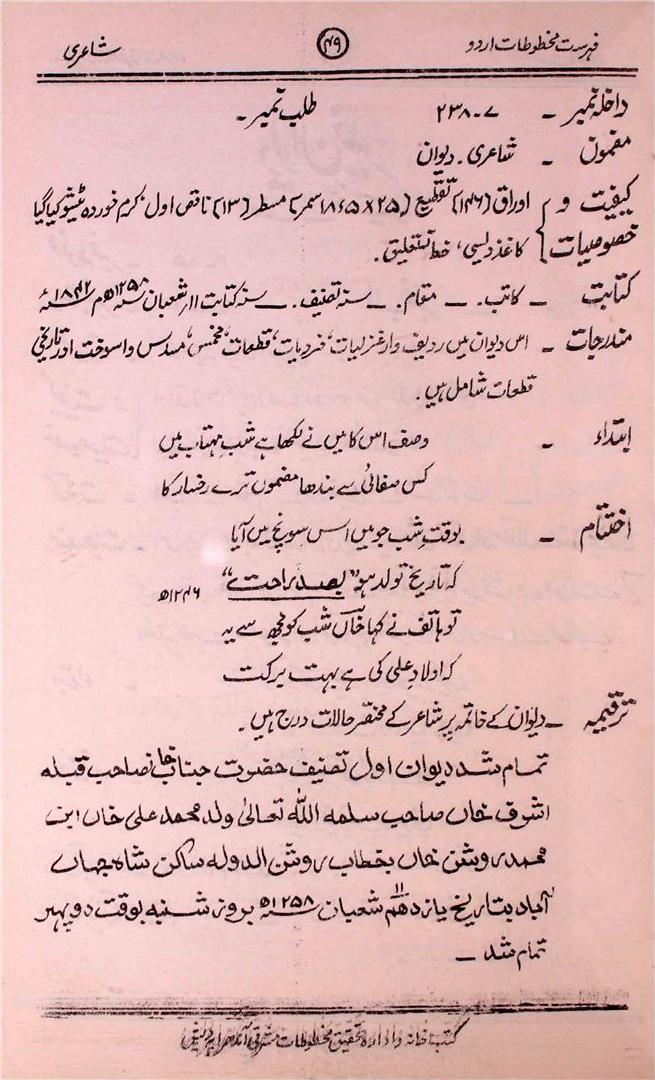 فہرست مخطوطات اردو ۴۹ شاعری
داخلہ نمبر - ۲۳۸۰۷ طلب نمبر -
مضمون - شاعری۔ دیوان
کیفیت و خصوصیات } اوراق (۱۴۶) تقطیع (۲۵×۱۸٫۵) سمر) مسطر (۱۳) ناقص اول، کرم خوردہ ٹیشو کیا گیا
کاغذ دیسی، خط نستعلیق۔
کتابت - کاتب۔ - مقام۔ - سنہ تصنیف۔ - سنہ کتابت ۱۱ر شعبان سنہ ۱۲۵۸ھ م سنہ ۱۸۴۲ء
مندرجات - اس دیوان میں ردیف وار غزلیات، فردیات، قطعات، مخمس، مسدس واسوخت اور تاریخی
قطعات شامل ہیں۔
ابتداء - وصف اس کا میں نے لکھا ہے شب مہتاب میں
کس صفائی سے بندھا مضموں ترے رخسار کا
اختتام - بوقتِ شب جو میں اس سونچ میں آیا
کہ تاریخ تولد ہو "بصد راحت" ۱۲۴۶ھ
تو ہاتف نے کہا خاںؔ شب کو مجھ سے یہ
کہ اولادِ علی کی ہے بہت برکت
ترقیمہ - دیوان کے خاتمہ پر شاعر کے مختصر حالات درج ہیں۔
تمام شد دیوان اول تصنیف حضرت جناب خانصاحب قبلہ
اشرف خاں صاحب سلمہ اللہ تعالیٰ ولد محمد علی خاں ابن
محمد روشن خاں بخطاب روشن الدولہ ساکن شاہ جہاں
آباد بتاریخ یازدھم ۱۱ شعبان سنہ ۱۲۵۸ھ بروز شنبہ بوقت دوپہر
تمام شد -
کتب خانہ و ادارہ تحقیق مخطوطات مشرقی آندھرا پردیش